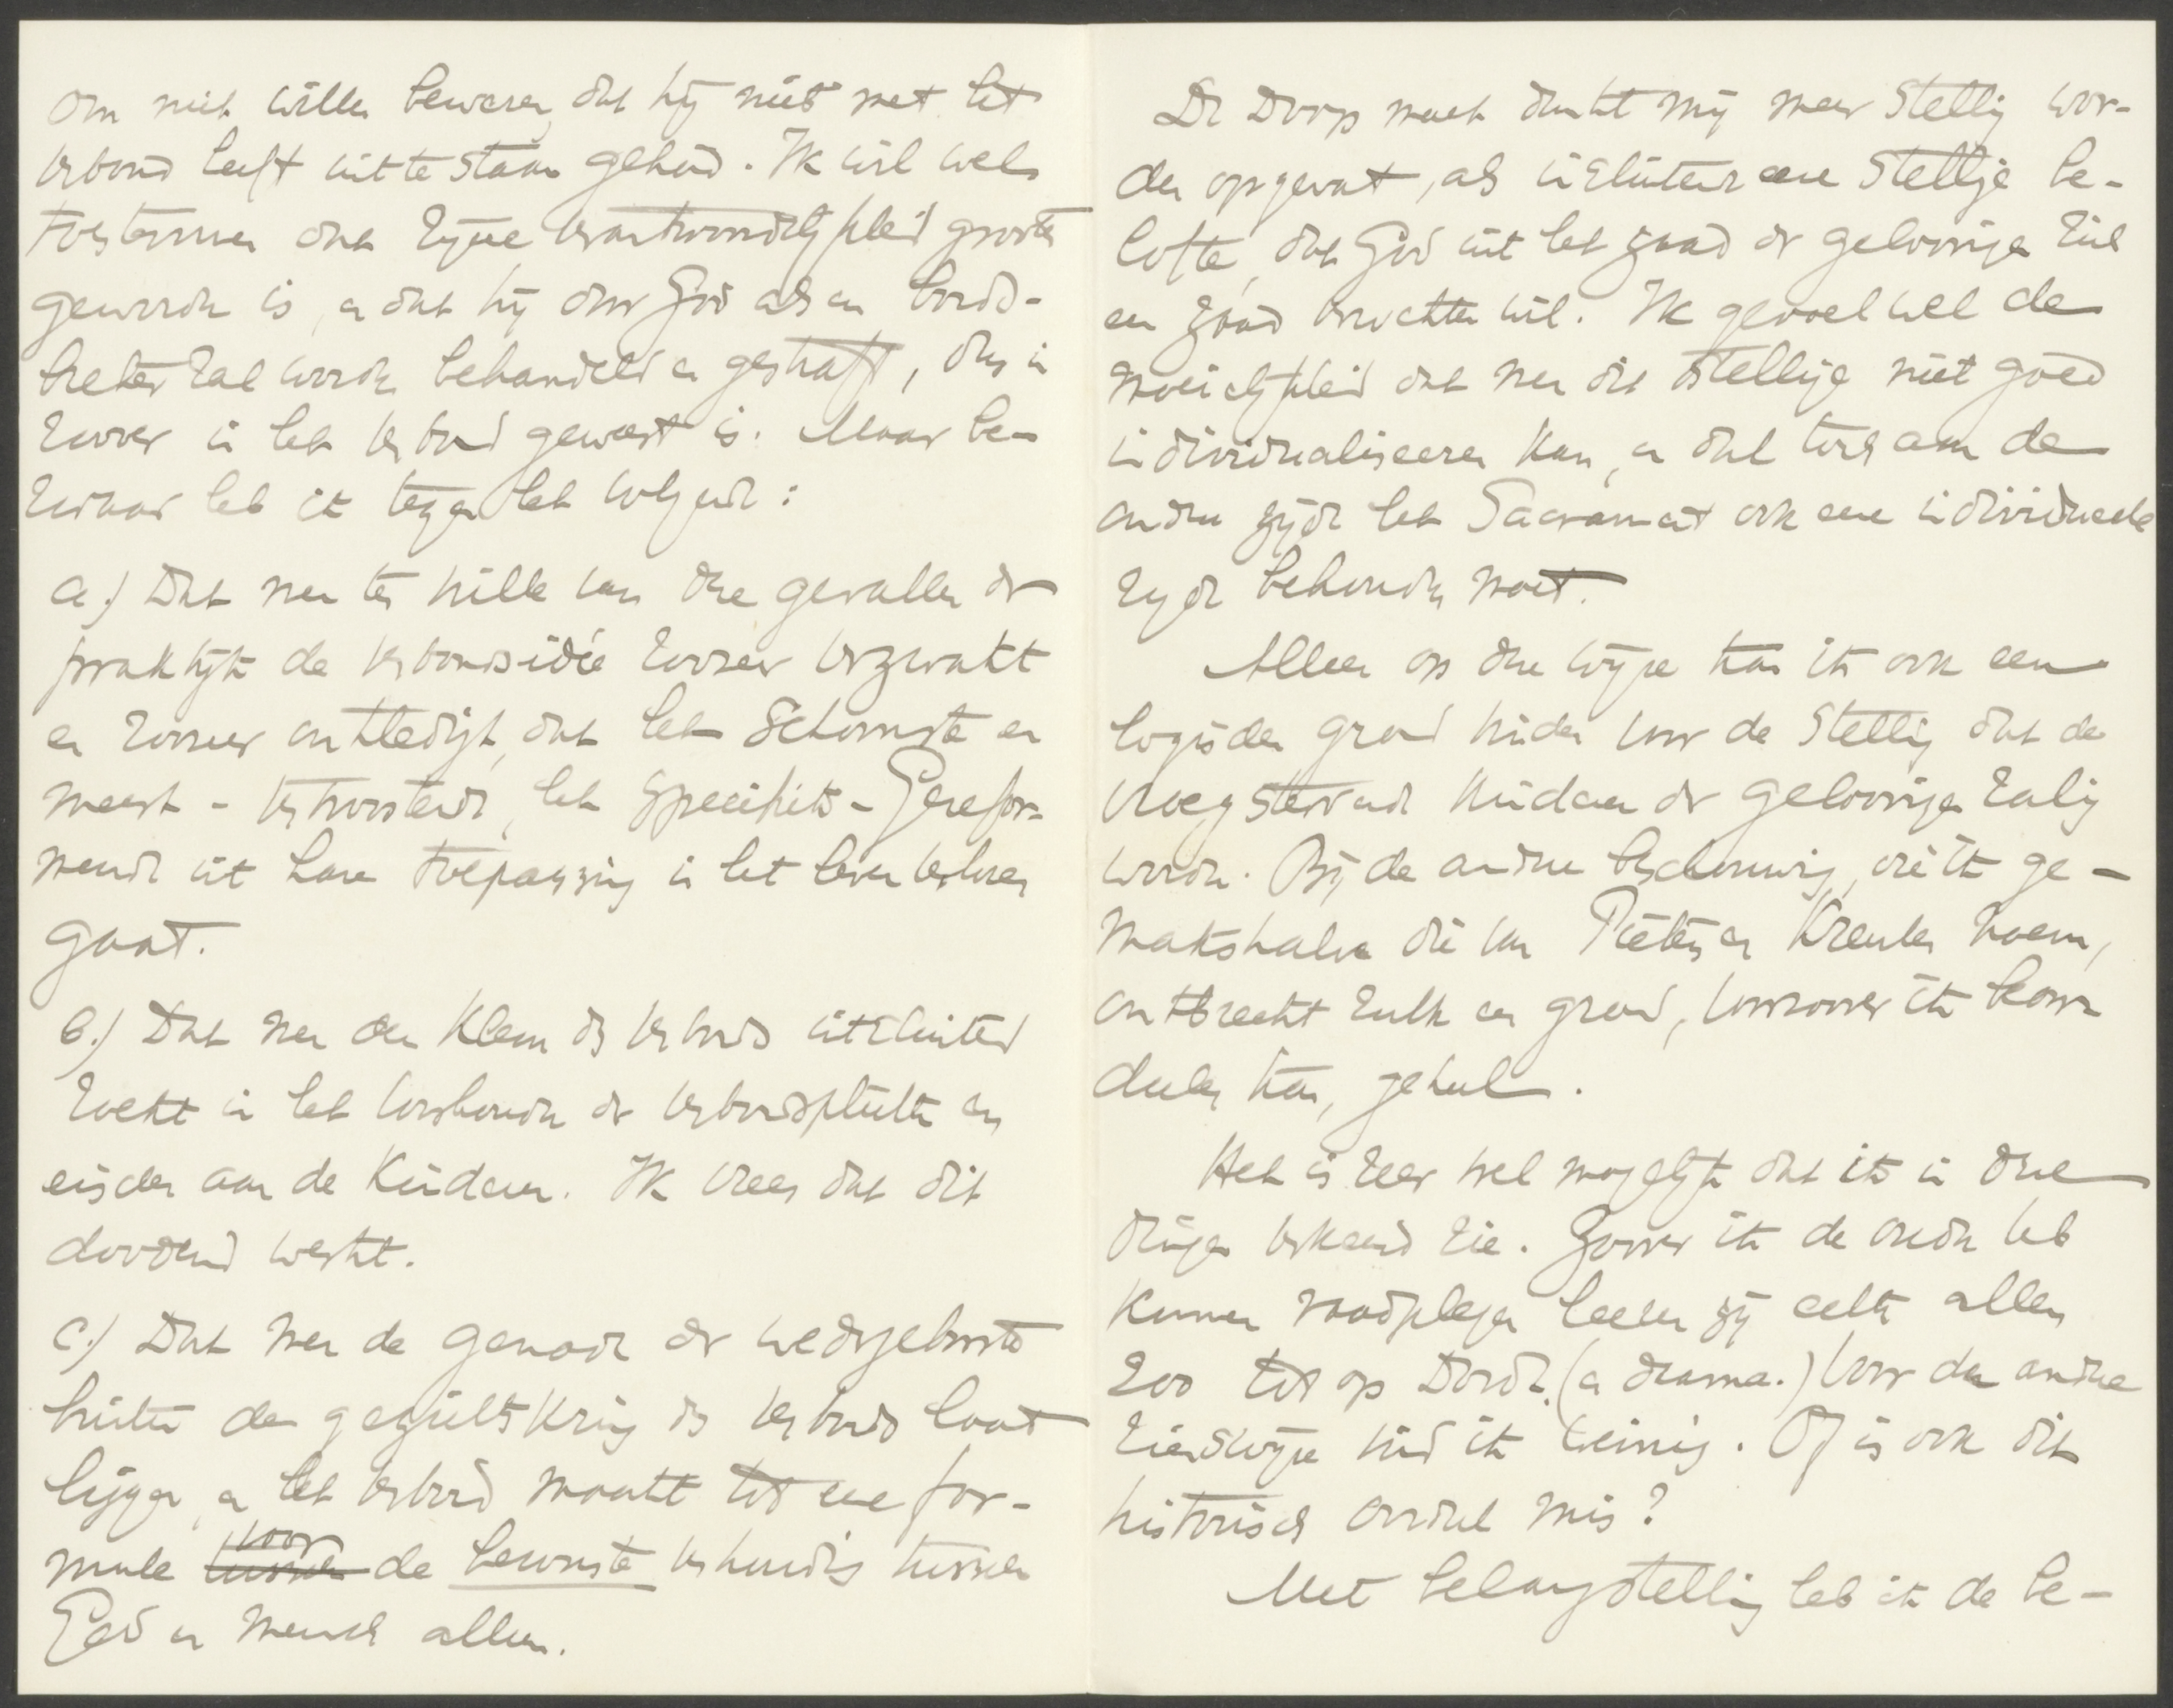 om niet willen beweren, dat hij niet met het
verbond heeft uit te staan gehad. Ik wil wel
toestemmen dat zijne verantwoordelijkheid grooter
geworden is, en dat hij door God als een bonds-
breker zal worden behandeld en gestraft, dus in
zoover in het verbond geweest is. Maar be-
zwaar heb ik tegen het volgende:
a.) Dat men ter wille van deze gevallen der
praktijk de verbondsidée zoozeer verzwakt
en zoozeer ontledigt, dat het schoonste en
meest-vertroostende, het specifiek-Gerefor-
meerde uit hare toepassing in het leven verloren
gaat.
b.) Dat men den klem des verbonds uitsluitend
zoekt in het voorhouden der verbondsplichten en
eischen aan de kinderen. Ik vrees dat dit
doodend werkt.
c.) Dat men de genade der wedergeboorte
buiten den gezichtskring des verbonds laat
liggen, en het verbond maakt tot eene for-
mule voor de bewuste verhouding tusschen
God en mensch alleen.
De Doop moet dunkt mij meer stellig wor-
den opgevat, als insluitende eene stellige be-
lofte, dat God uit het zaad der geloovigen zich
een zaad verwekken wil. Ik gevoel wel de
moeielijkheid dat men dit stellige niet goed
individualiseeren kan, en dat toch aan de
andere zijde het Sacrament ook eene individueele
zijde behouden moet.
Alleen op deze wijze kan ik ook een
logischen grond vinden voor de stelling dat de
vroegstervende kinderen der geloovigen zalig
worden. Bij de andere beschouwing, die ik ge-
makshalve die van Pieters en Kreulen noem,
ontbreekt zulk een grond, voorzoover ik beoor-
deelen kan, geheel.
Het is zeer wel mogelijk dat ik in deze
dingen verkeerd zie. Zoover ik de ouden heb
kunnen raadplegen leeren zij echter allen
zoo tot op Dordt. (en daarna.) Voor de andere
zienswijze vind ik weinig. Of is ook dit
historisch oordeel mis?
Met belangstelling heb ik de be-